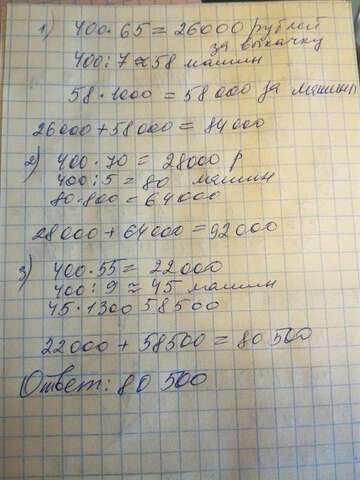 1) 400·65 = 26000 рублей
за выкачку
400:7≈58 машин
58·1000 = 58 000 за машины
26000+58000 = 84000
2) 400·70 = 28000 р
400:5 = 80 машин
80·800 = 64000
28000 + 64000 = 92000
3) 400·55 = 22000
400:9 ≈ 45 машин
45·1300 58500
22000 + 58500 = 80 500
Ответ: 80 500